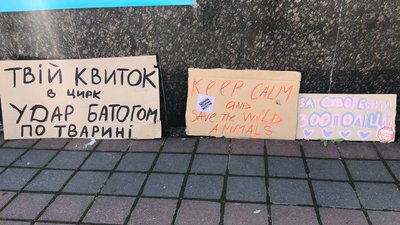 ТВІЙ КВИТОК
В ЦИРК
УДАР БАТОГОМ
ПО ТВАРИНІ
KEEP CALM
AND
SAVE the WILD
ANIMALS
ЗА СТВОРЕННЯ
ЗООПОЛІЦІЇ